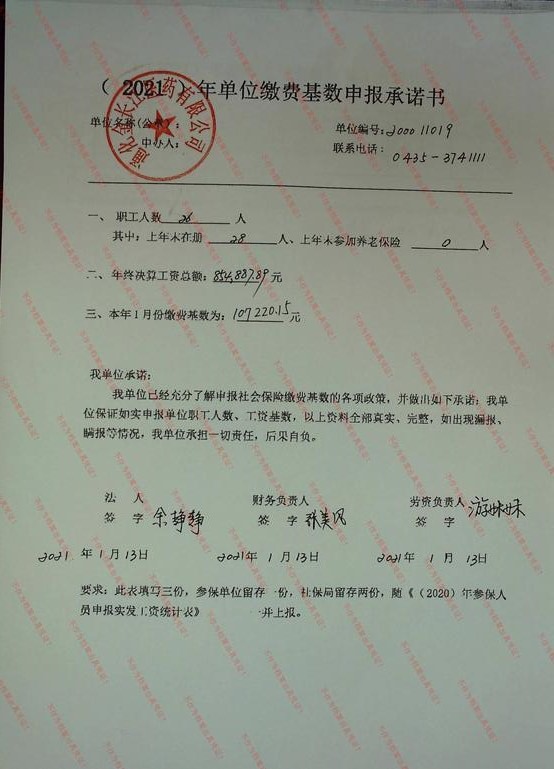 （ 2021 ）年单位缴费基数申报承诺书
单位名称(公章)：
单位编号：200011019
申办人：
联系电话：0435-3741111
一、 职工人数 26 人
其中：上年末在册 28 人、上年末参加养老保险 0 人
二、年终决算工资总额：854,887.89 元
三、本年1月份缴费基数为：107220.15元
我单位承诺：
我单位已经充分了解申报社会保险缴费基数的各项政策，并做出如下承诺：我单
位保证如实申报单位职工人数、工资基数，以上资料全部真实、完整，如出现漏报、
瞒报等情况，我单位承担一切责任，后果自负。
法 人 财务负责人 劳资负责人
签 字 余静静 签 字 张美凤 签 字 游妹妹
2021. 年 1 月 13日 2021年 1 月 13日 2021年 1 月 13日
要求：此表填写三份，参保单位留存一份，社保局留存两份，随《（2020）年参保人
员申报实发工资统计表》一并上报。